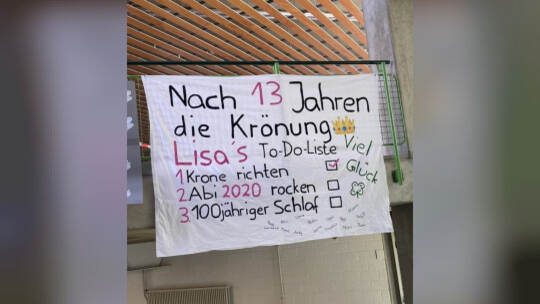 Nach 13 Jahren
die Krönung
Lisa's To-Do-Liste
1 Krone richten
2. Abi 2020 rocken
3. 100jähriger Schlaf
Viel
Glück